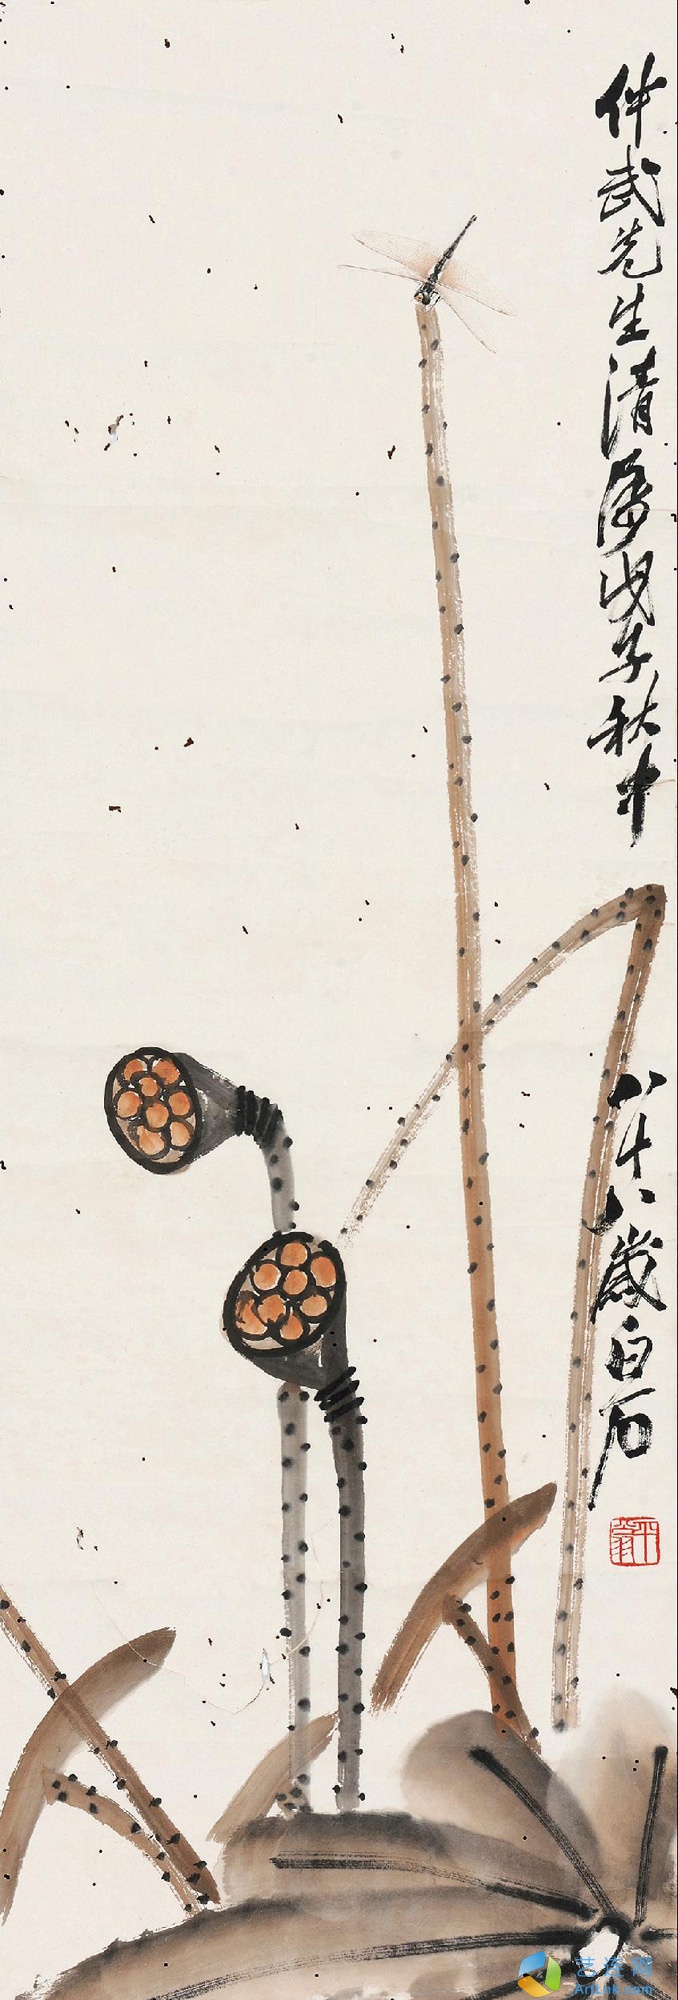 仲武先生清属戊子秋中
八十八歲白石
平翁
艺连网
ArtLnk.com